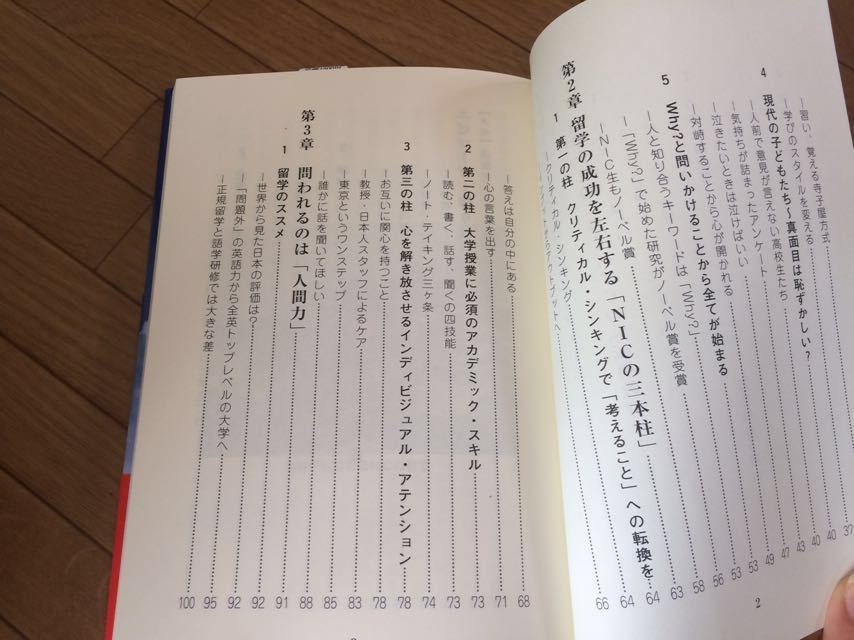 —習い、覚える寺子屋方式 37
—学びのスタイルを変える 40
4 現代の子どもたち～真面目は恥ずかしい? 40
—人前で意見が言えない高校生たち 43
—気持ちが詰まったアンケート 47
—泣きたいときは泣けばいい 49
—対峙することから心が開かれる 53
5 Why?と問いかけることから全てが始まる 53
—人と知り合うキーワードは「Why?」 56
—「Why?」で始めた研究がノーベル賞を受賞 58
—NIC生もノーベル賞 63
第2章 留学の成功を左右する「NICの三本柱」 64
1 第一の柱 クリティカル・シンキングで「考えること」への転換を 64
—クリティカル・シンキング 66
アウトプットへ
2
—答えは自分の中にある 68
—心の言葉を出す 71
2 第二の柱 大学授業に必須のアカデミック・スキル 73
—読む、書く、話す、聞くの四技能 73
—ノート・テイキング三ヶ条 74
3 第三の柱 心を解き放させるインディビジュアル・アテンション 78
—お互いに関心を持つこと 78
—教授・日本人スタッフによるケア 83
—東京というワンステップ 85
—誰かに話を聞いてほしい 88
第3章 問われるのは「人間力」 91
1 留学のススメ 92
—世界から見た日本の評価は? 92
—「問題外」の英語力から全英トップレベルの大学へ 95
—正規留学と語学研修では大きな差 100